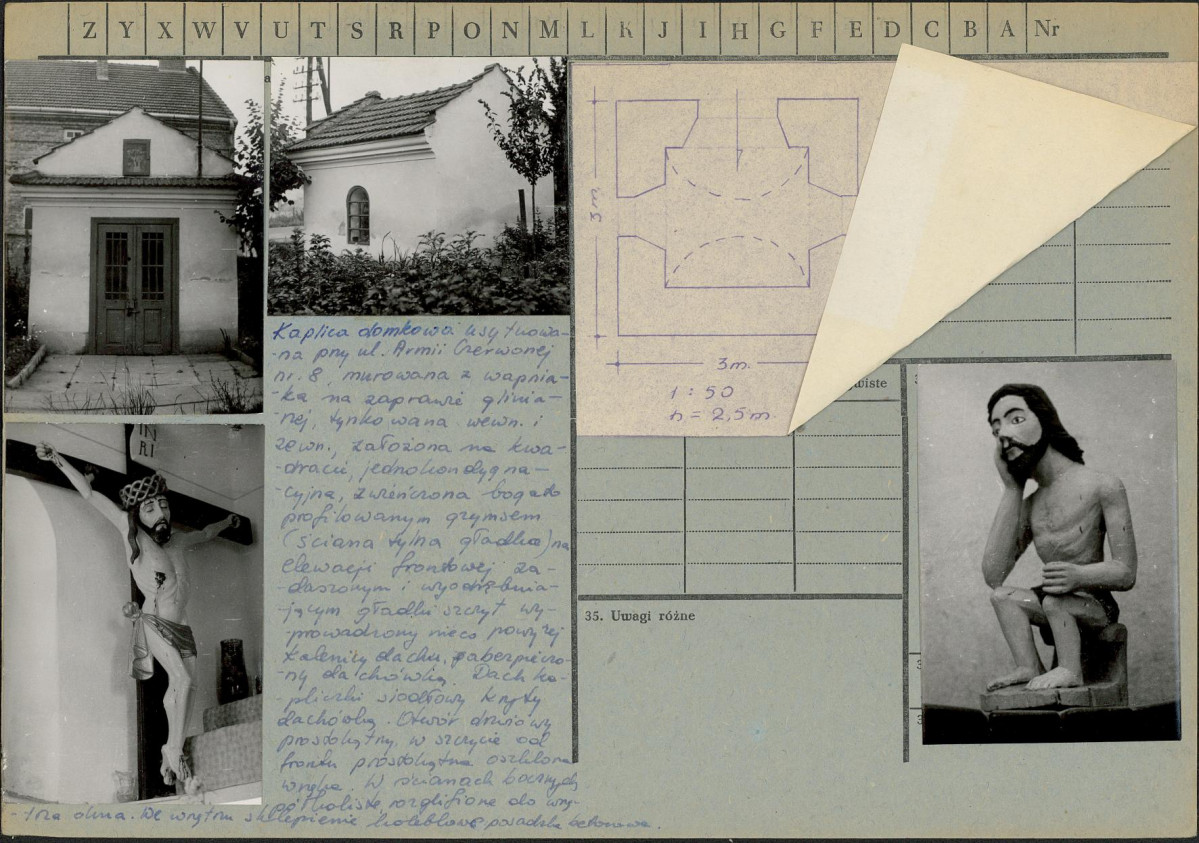 Z Y X W V U T S R P O N M L K J I H G F E D C B A Nr
a
IN
RI
Kaplica domkowa usytuowa-
-na przy ul. Armii Czerwonej
nr. 8, murowana z wapnia-
-ka na zaprawie glinia-
nej, tynkowana wewn. i
zewn., założona na kwa-
-dracie, jednokondygna-
-cyjna, zwieńczona bogato
profilowanym gzymsem
(ściana tylna gładka) na
elewacji frontowej za-
-daszonym i wyodrębnia-
-jącym gładki szczyt wy-
-prowadzony nieco powyżej
kalenicy dachu, zabezpieczo-
-ny dachówką. Dach ka-
-pliczki siodłowy kryty
dachówką. Otwór drzwiowy
prostokątny, w szczycie od
frontu prostokątna oszklona
wnęka. W ścianach bocznych
półkoliste, rozglifione do wnę-
-trza okna. We wnętrzu sklepienie kolebkowe, posadzka betonowa.
3m.
3m.
1 : 50
h = 2,5m.
wiste
35. Uwagi różne